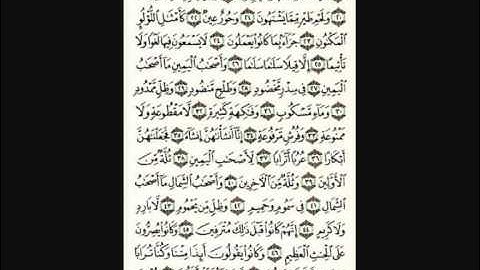 ۝٢٠ وَلَحْمِ طَيْرٍ مِّمَّا يَشْتَهُونَ ۝٢١ وَحُورٌ عِينٌ ۝٢٢ كَأَمْثَٰلِ ٱللُّؤْلُؤِ
ٱلْمَكْنُونِ ۝٢٣ جَزَآءًۢ بِمَا كَانُوا۟ يَعْمَلُونَ ۝٢٤ لَا يَسْمَعُونَ فِيهَا لَغْوًا وَلَا
تَأْثِيمًا ۝٢٥ إِلَّا قِيلًا سَلَٰمًا سَلَٰمًا ۝٢٦ وَأَصْحَٰبُ ٱلْيَمِينِ مَآ أَصْحَٰبُ
ٱلْيَمِينِ ۝٢٧ فِى سِدْرٍ مَّخْضُودٍ ۝٢٨ وَطَلْحٍ مَّنضُودٍ ۝٢٩ وَظِلٍّ مَّمْدُودٍ
۝٣٠ وَمَآءٍ مَّسْكُوبٍ ۝٣١ وَفَٰكِهَةٍ كَثِيرَةٍ ۝٣٢ لَّا مَقْطُوعَةٍ وَلَا
مَمْنُوعَةٍ ۝٣٣ وَفُرُشٍ مَّرْفُوعَةٍ ۝٣٤ إِنَّآ أَنشَأْنَٰهُنَّ إِنشَآءً ۝٣٥ فَجَعَلْنَٰهُنَّ
أَبْكَارًا ۝٣٦ عُرُبًا أَتْرَابًا ۝٣٧ لِّأَصْحَٰبِ ٱلْيَمِينِ ۝٣٨ ثُلَّةٌ مِّنَ
ٱلْأَوَّلِينَ ۝٣٩ وَثُلَّةٌ مِّنَ ٱلْءَاخِرِينَ ۝٤٠ وَأَصْحَٰبُ ٱلشِّمَالِ مَآ أَصْحَٰبُ
ٱلشِّمَالِ ۝٤١ فِى سَمُومٍ وَحَمِيمٍ ۝٤٢ وَظِلٍّ مِّن يَحْمُومٍ ۝٤٣ لَّا بَارِدٍ
وَلَا كَرِيمٍ ۝٤٤ إِنَّهُمْ كَانُوا۟ قَبْلَ ذَٰلِكَ مُتْرَفِينَ ۝٤٥ وَكَانُوا۟ يُصِرُّونَ
عَلَى ٱلْحِنثِ ٱلْعَظِيمِ ۝٤٦ وَكَانُوا۟ يَقُولُونَ أَئِذَا مِتْنَا وَكُنَّا تُرَابًا